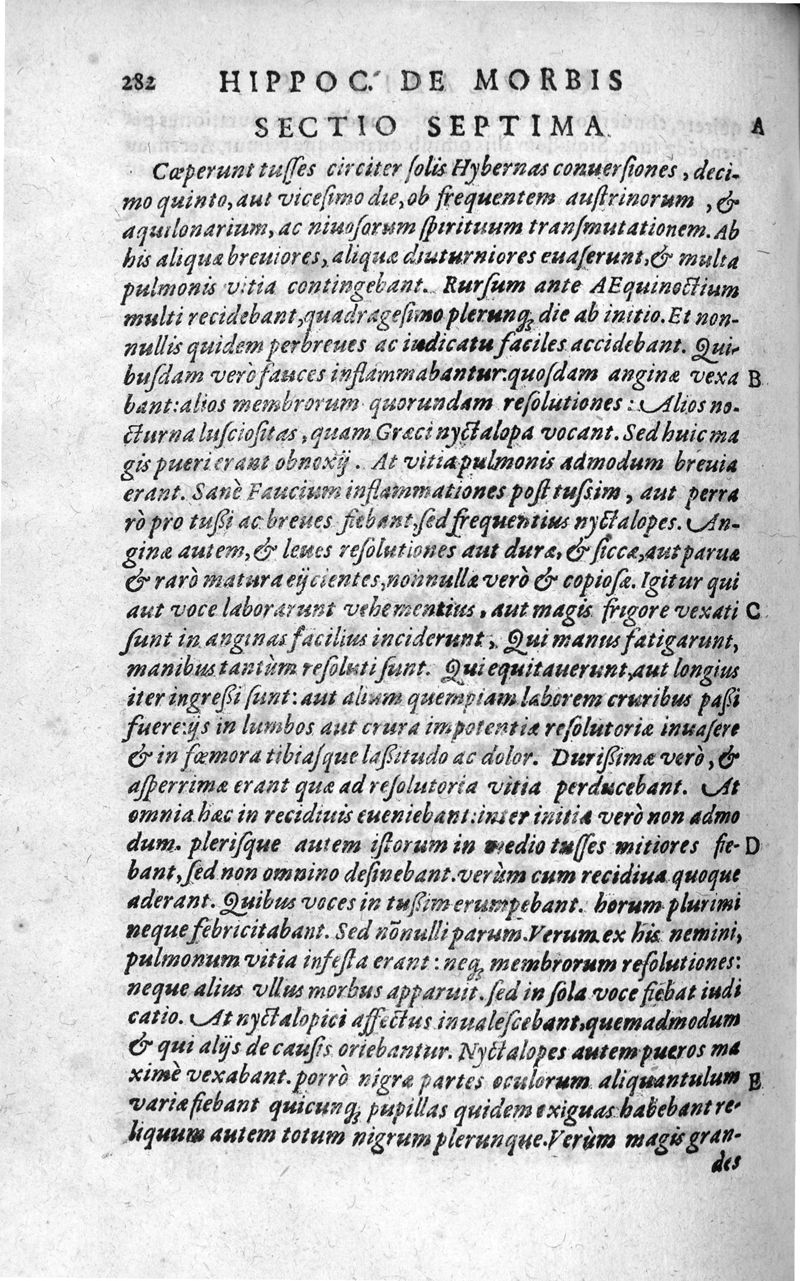 282 HIPPOC. DE MORBIS
SECTIO SEPTIMA. A
Cœperunt tuſſes circiter ſolis Hybernas conuerſiones, deci-
mo quinto, aut viceſimo die, ob frequentem auſtrinorum , &
aquilonarium, ac niuoſorum ſpirituum tranſmutationem. Ab
his aliquæ breuiores, aliquæ diuturniores euaſerunt, & multa
pulmonis vitia contingebant. Rurſum ante AEquinoctium
multi recidebant, quadrageſimo plerunq; die ab initio. Et non-
nullis quidem perbreues ac iudicatu faciles accidebant. Qui-
buſdam verò fauces inflammabantur: quoſdam anginæ vexa B
bant: alios membrorum quorundam reſolutiones: Alios no-
cturna luſcioſitas, quam Græci nyctalopa vocant. Sed huic ma
gis pueri erant obnoxij. At vitia pulmonis admodum breuia
erant. Sanè Faucium inflammationes poſt tuſsim, aut perra
rò pro tuſsi ac breues fiebant, ſed frequentius nyctalopes. An-
ginæ autem, & leues reſolutiones aut duræ, & ſiccæ, aut parua
& rarò matura eijcientes, nonnullæ verò & copioſæ. Igitur qui
aut voce laborarunt vehementius, aut magis frigore vexati C
ſunt in anginas facilius inciderunt. Qui manus fatigarunt,
manibus tantùm reſoluti ſunt. Qui equitauerunt, aut longius
iter ingreſsi ſunt: aut alium quempiam laborem cruribus paſsi
fuere: ijs in lumbos aut crura impotentiæ reſolutoriæ inuaſere
& in fœmora tibiaſque laſsitudo ac dolor. Duriſsimæ verò, &
aſperrimæ erant quæ ad reſolutoria vitia perducebant. At
omnia hæc in recidiuis eueniebant: inter initia verò non admo
dum. pleriſque autem iſtorum in medio tuſſes mitiores fie- D
bant, ſed non omnino deſinebant. verùm cum recidiua quoque
aderant. Quibus voces in tuſsim erumpebant. horum plurimi
neque febricitabant. Sed nõnulli parum. Verum ex his nemini,
pulmonum vitia infeſta erant: neq; membrorum reſolutiones:
neque alius vllus morbus apparuit. ſed in ſola voce fiebat iudi
catio. At nyctalopici affectus inualeſcebant, quemadmodum
& qui alijs de cauſis oriebantur. Nyctalopes autem pueros ma
ximè vexabant. porrò nigræ partes oculorum aliquantulum E
variæ fiebant quicunq; pupillas quidem exiguas habebant re-
liquum autem totum nigrum plerunque. Verùm magis gran-
des